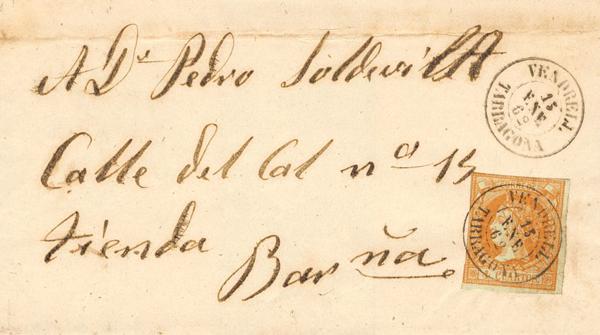 A Dn Pedro Soldevilla
Calle del Cal nº 15
tienda Barña
VENDRELL
15
ENE
62
TARRAGONA
VENDRELL
15
ENE
62
TARRAGONA